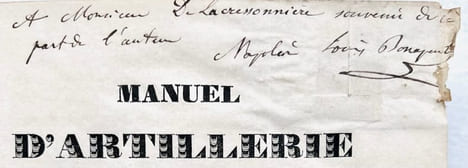 A Monsieur De Lacressonnière souvenir de la
part de l'auteur
Napoléon Louis Bonapart
MANUEL
D'ARTILLERIE